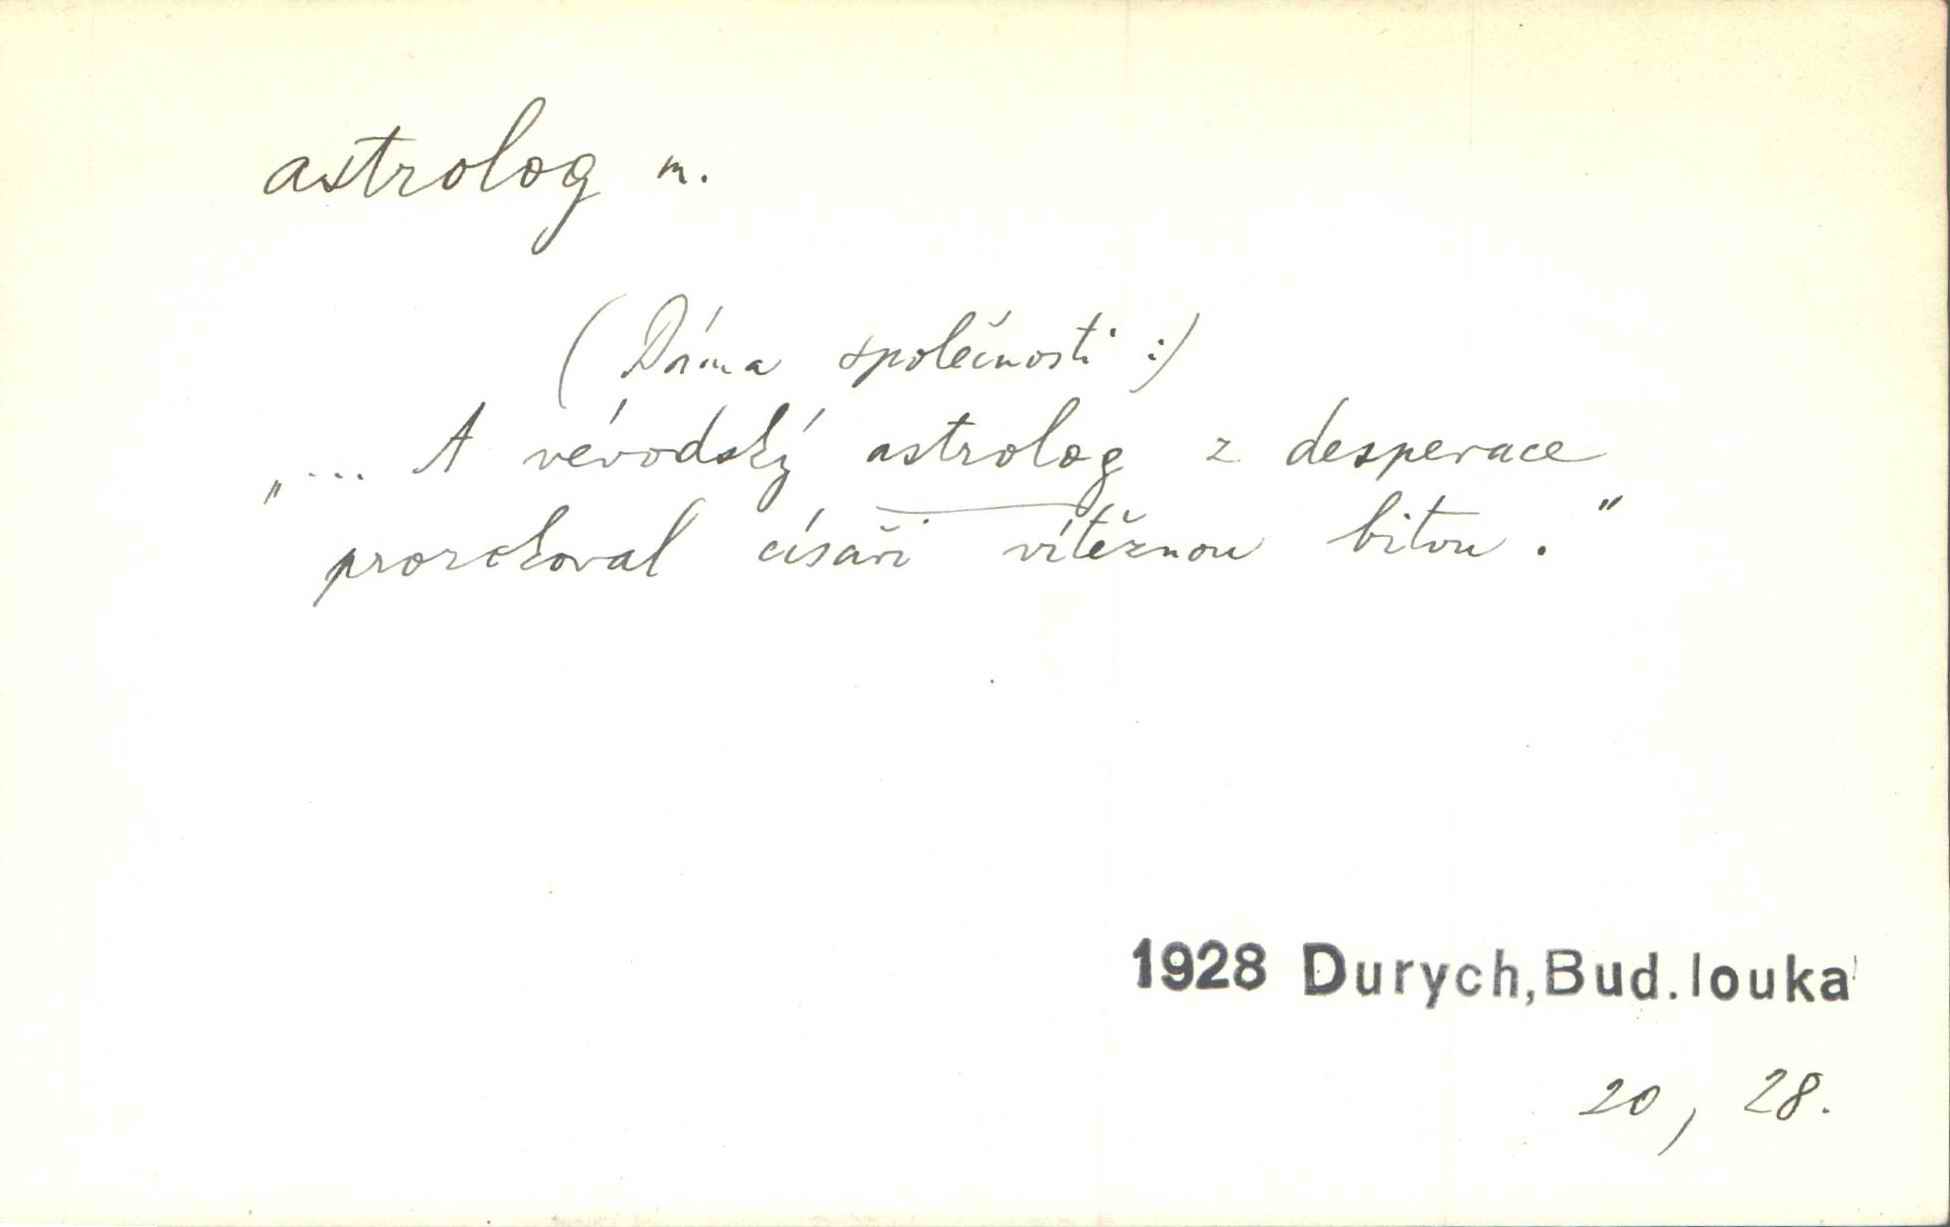 astrolog m.
(Dáma společnosti:)
„... A vévodský astrolog z desperace
prorokoval císaři vítěznou bitvu."
1928 Durych,Bud.louka
20, 28.